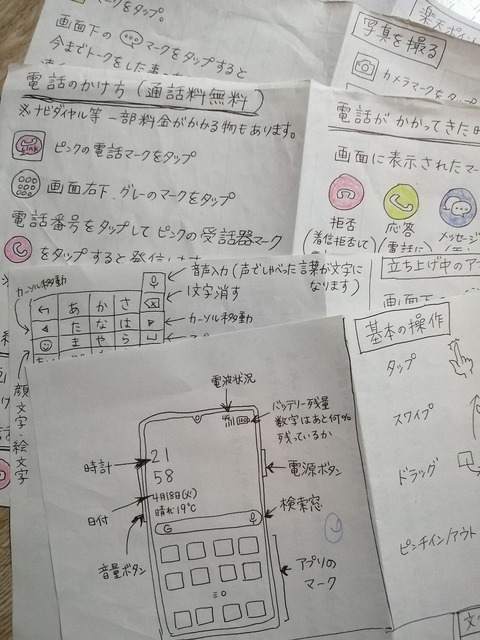 マークをタップ。
画面下の マークをタップすると
今までトークをした
楽天ポイン
写真を撮る
カメラマークをタップ
電話のかけ方(通話料無料)
※ナビダイヤル等 一部料金がかかる物もあります。
Link
ピンクの電話マークをタップ
画面右下、グレーのマークをタップ
電話番号をタップしてピンクの受話器マーク
をタップすると発信
電話がかかってきた時
画面に表示されたマー
拒否
(着信拒否して
応答
電話に
メッセージ
立ち上げ中のア
画面下
カーソル移動
音声入力(声でしゃべった言葉が文字に
なります)
1文字消す
カーソル移動
あ か さ
た な は
ま や ら
顔文字・絵文字
基本の操作
タップ
スワイプ
ドラッグ
ピンチイン/アウト
電波状況
バッテリー残量
数字はあと何%
残っているか
時計
21
58
4月18日(火)
晴れ 19℃
日付
音量ボタン
電源ボタン
検索窓
G
アプリの
マーク